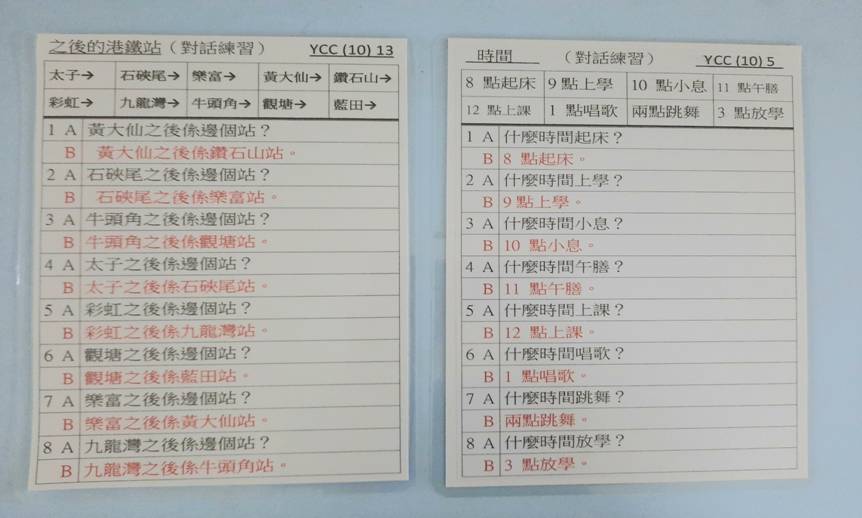 之後的港鐵站（對話練習） YCC (10) 13
太子→ 石硤尾→ 樂富→ 黃大仙→ 鑽石山→
彩虹→ 九龍灣→ 牛頭角→ 觀塘→ 藍田→
1 A 黃大仙之後係邊個站？
B 黃大仙之後係鑽石山站。
2 A 石硤尾之後係邊個站？
B 石硤尾之後係樂富站。
3 A 牛頭角之後係邊個站？
B 牛頭角之後係觀塘站。
4 A 太子之後係邊個站？
B 太子之後係石硤尾站。
5 A 彩虹之後係邊個站？
B 彩虹之後係九龍灣站。
6 A 觀塘之後係邊個站？
B 觀塘之後係藍田站。
7 A 樂富之後係邊個站？
B 樂富之後係黃大仙站。
8 A 九龍灣之後係邊個站？
B 九龍灣之後係牛頭角站。
時間 （對話練習） YCC (10) 5
8 點起床 9點上學 10 點小息 11 點午膳
12 點上課 1 點唱歌 兩點跳舞 3 點放學
1 A 什麼時間起床？
B 8 點起床。
2 A 什麼時間上學？
B 9點上學。
3 A 什麼時間小息？
B 10 點小息。
4 A 什麼時間午膳？
B 11 點午膳。
5 A 什麼時間上課？
B 12 點上課。
6 A 什麼時間唱歌？
B 1 點唱歌。
7 A 什麼時間跳舞？
B 兩點跳舞。
8 A 什麼時間放學？
B 3 點放學。